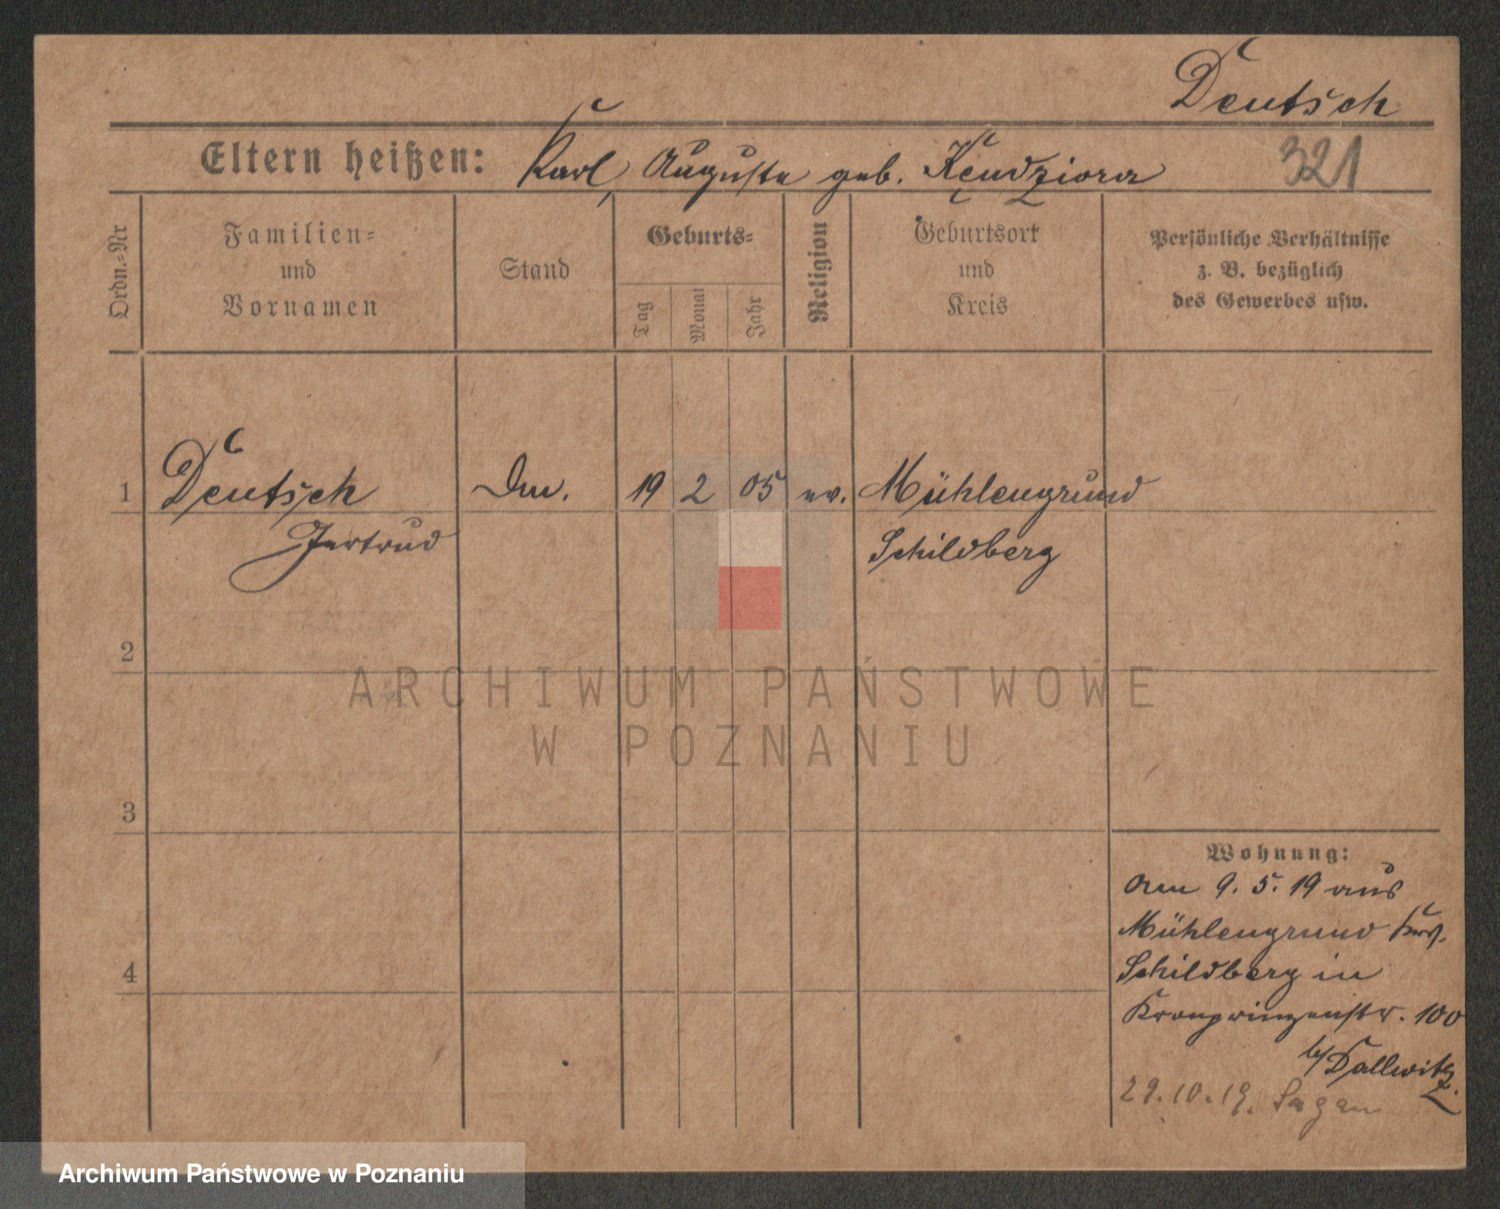 Deutsch
Eltern heißen: Karl, Auguste geb. Kendziora 321
Ordn.-Nr
Familien-
und
Vornamen
Stand
Geburts-
Tag
Monat
Jahr
Religion
Geburtsort
und
Kreis
Persönliche Verhältnisse
z. B. bezüglich
des Gewerbes usw.
1 Deutsch 19 2 05 ev. Mühlengrund
Gertrud Schildberg
2
ARCHIWUM PAŃSTWOWE
W POZNANIU
3
Wohnung:
am 9. 5. 19 aus
Mühlengrund
4 Schildberg in
Kronprinzenstr. 100
b/ Dallwitz.
29.10.19. Sagan
Archiwum Państwowe w Poznaniu